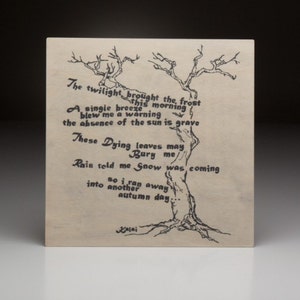 The twilight brought the frost
this morning
A single breeze
blew me a warning
the absence of the sun is grave
These Dying leaves may
Bury me
Rain told me Snow was coming
so i ran away
into another
autumn day